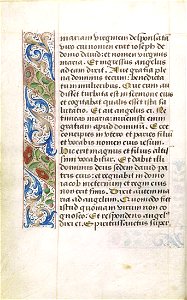 mariam virginem desponsata
viro cui nomen erat ioseph de
domo david: et nomen virginis
maria. Et ingressus angelus
ad eam dixit. Ave gratia ple
na dominus tecum: benedicta
tu in mulieribus. Que cum au
disset turbata est in sermone eius
et cogitabat qualis esset ista sa
lutatio. Et ait angelus ei. Ne
timeas maria: invenisti enim
gratiam apud dominum. Ecce
concipies in utero et paries filiu
et vocabis nomen eius iesum.
Hic erit magnus et filius altis
simi vocabitur. Et dabit illi
dominus deus sedem david pa
tris eius: et regnabit in domo
iacob in eternum et regni eius
non erit finis. Dixit autem ma
ria ad angelum. Quomodo fiet
istud quoniam virum non co
gnosco. Et respondens angelus
dixit ei. Spiritus sanctus super